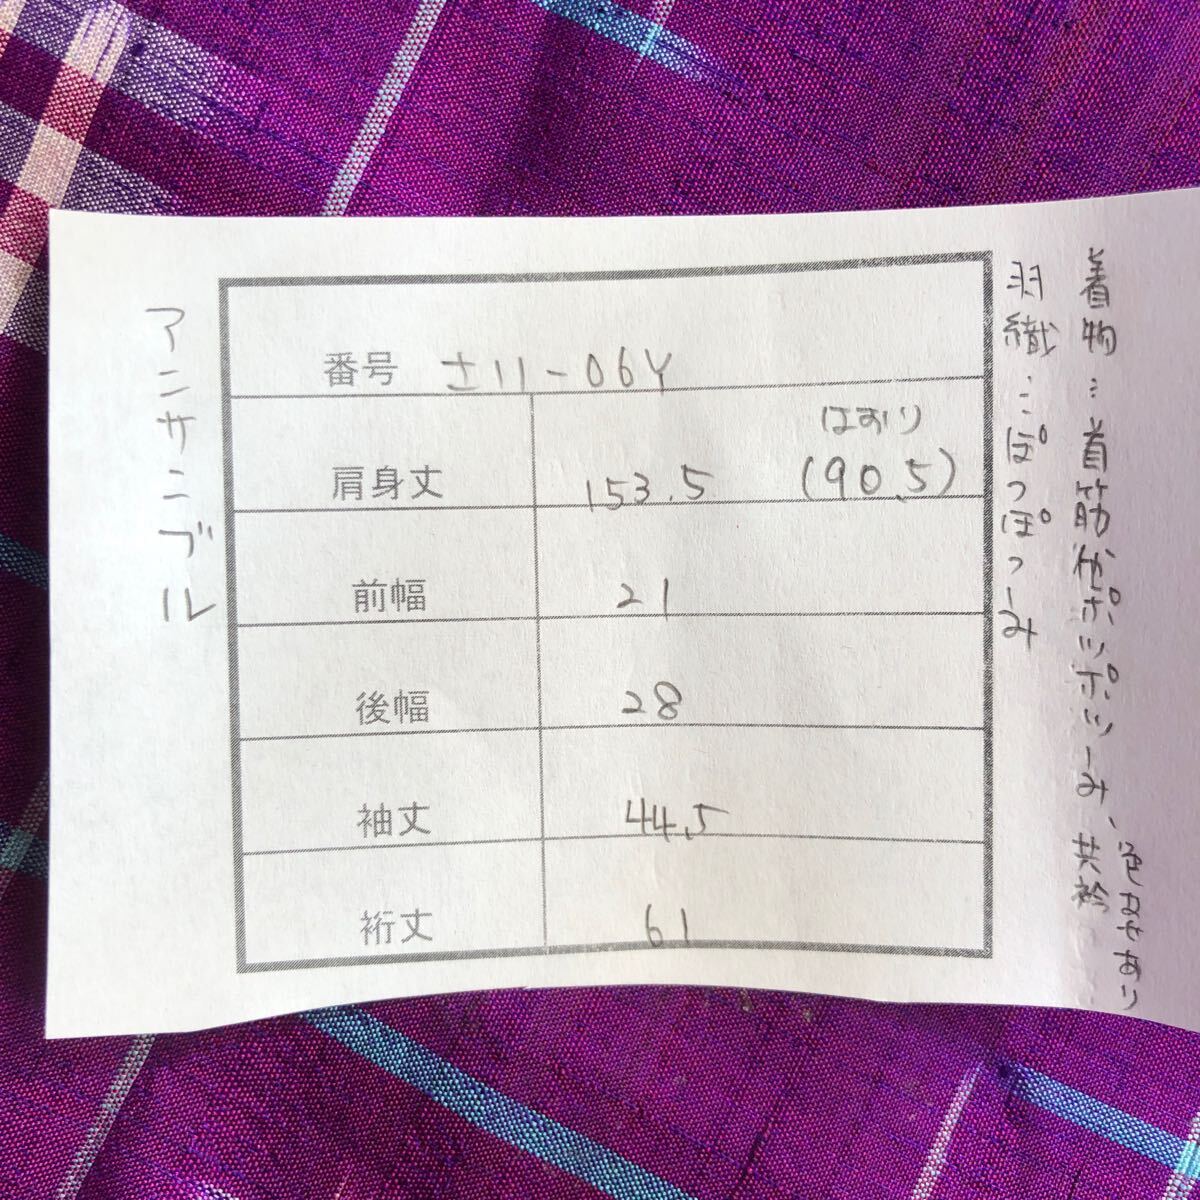 着物：首筋他ポツポツしみ、色あせあり
共衿
羽織：ぽつぽつしみ
番号 士11-06Y
肩身丈 153.5 はおり (90.5)
前幅 21
後幅 28
袖丈 44.5
裄丈 61
アンサンブル